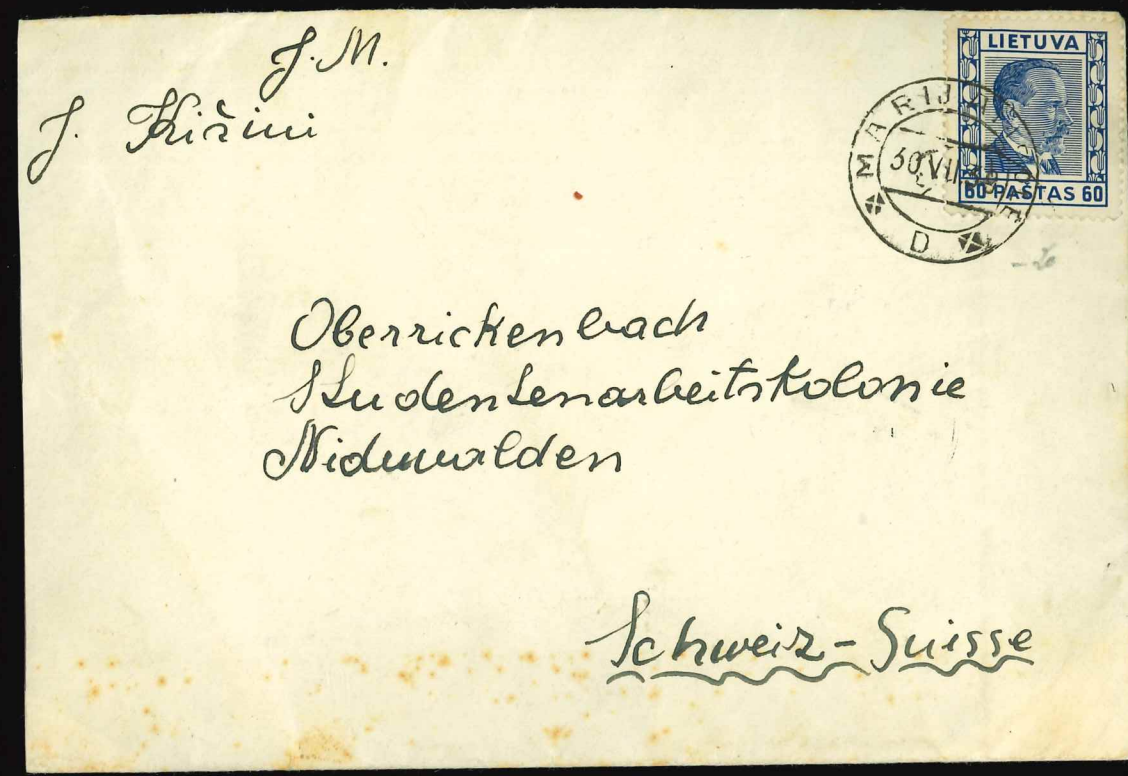 J. M.
J. Kižini
LIETUVA
60 PAŠTAS 60
MARIJAMPOLĖ
30.VII
D
Oberrickenbach
Studentenarbeitskolonie
Nidwalden
Schweiz-Suisse